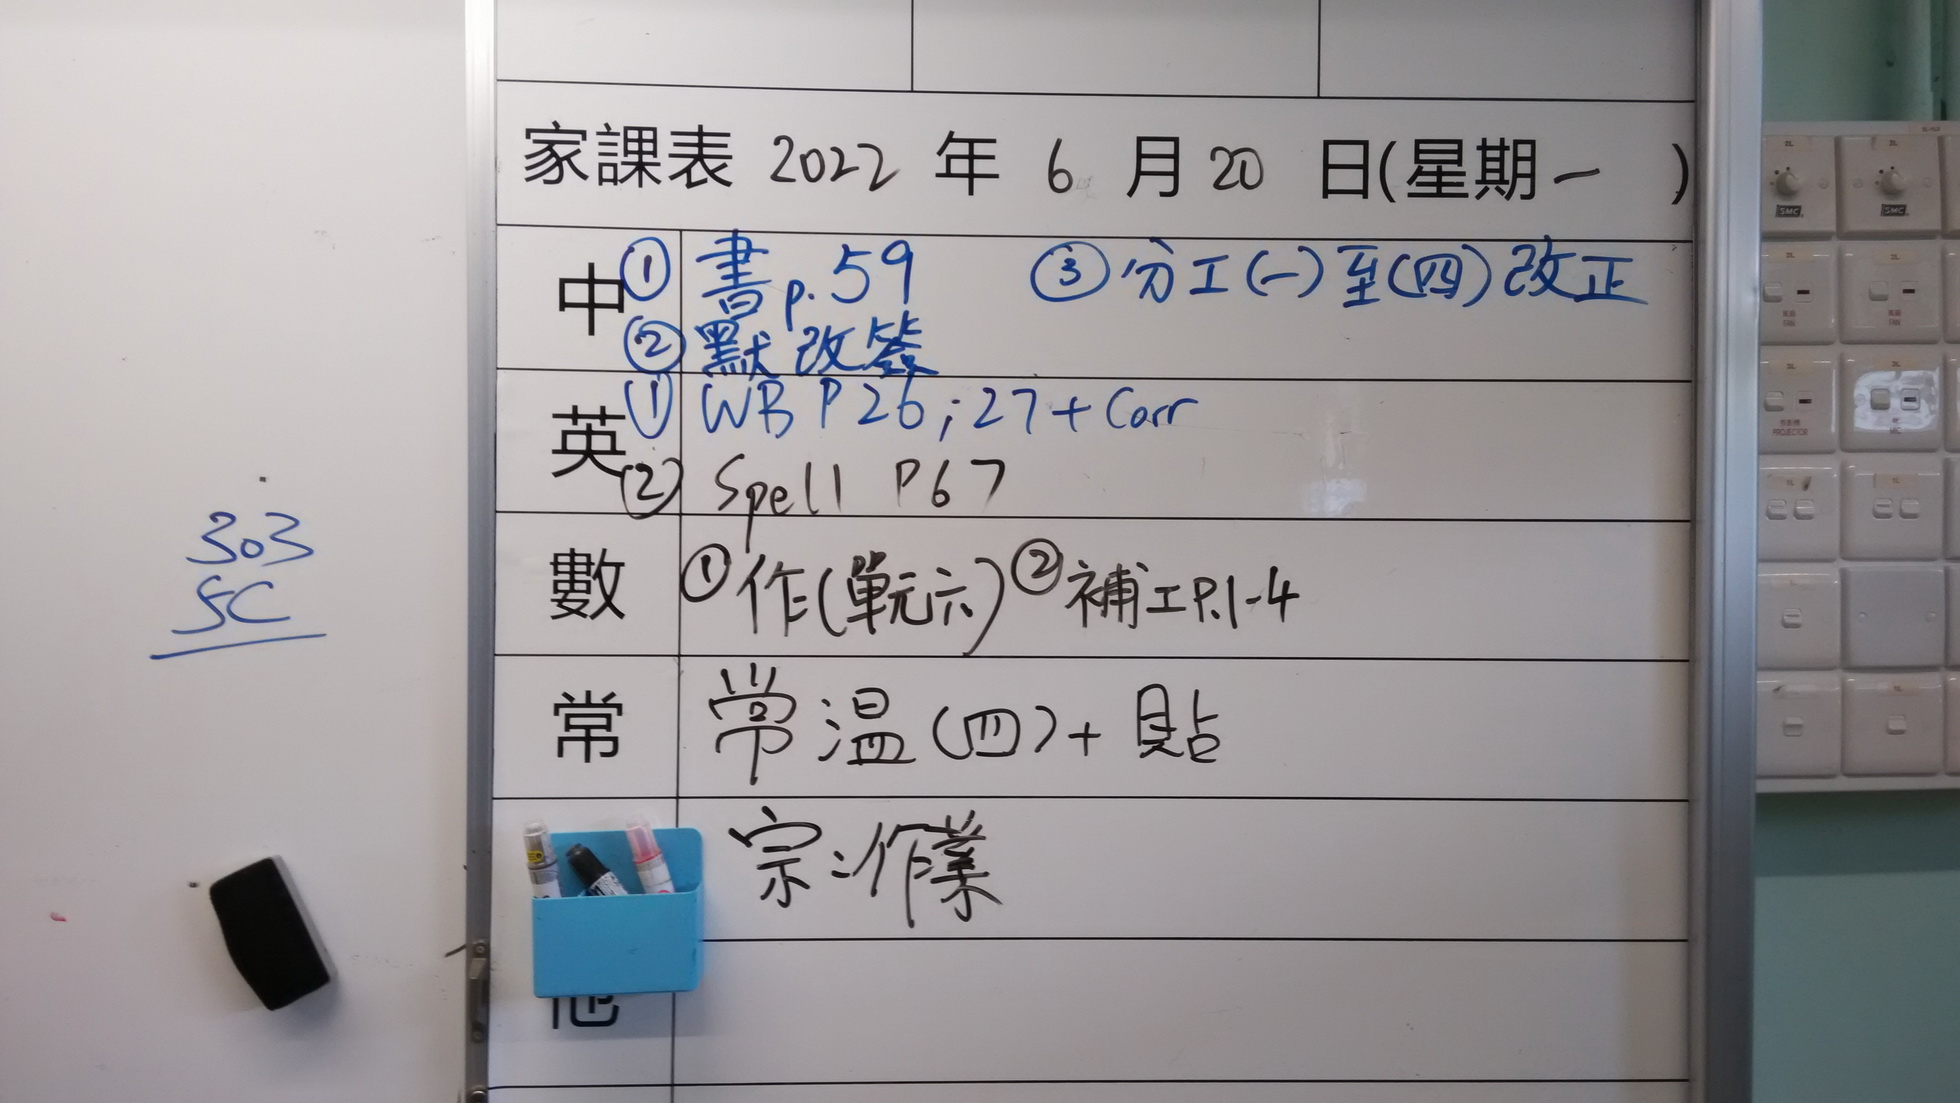 家課表 2022 年 6 月 20 日(星期一 )
中 ① 書 p.59 ③ 分工(一)至(四)改正
② 默改簽
英 ① WB P26;27+Corr
② Spell P67
數 ①作(單元六) ②補工P.1-4
常 常温(四)+貼
宗:作業
他
303
5C
SMC
SMC
FAN
FAN
PROJECTOR
MIC